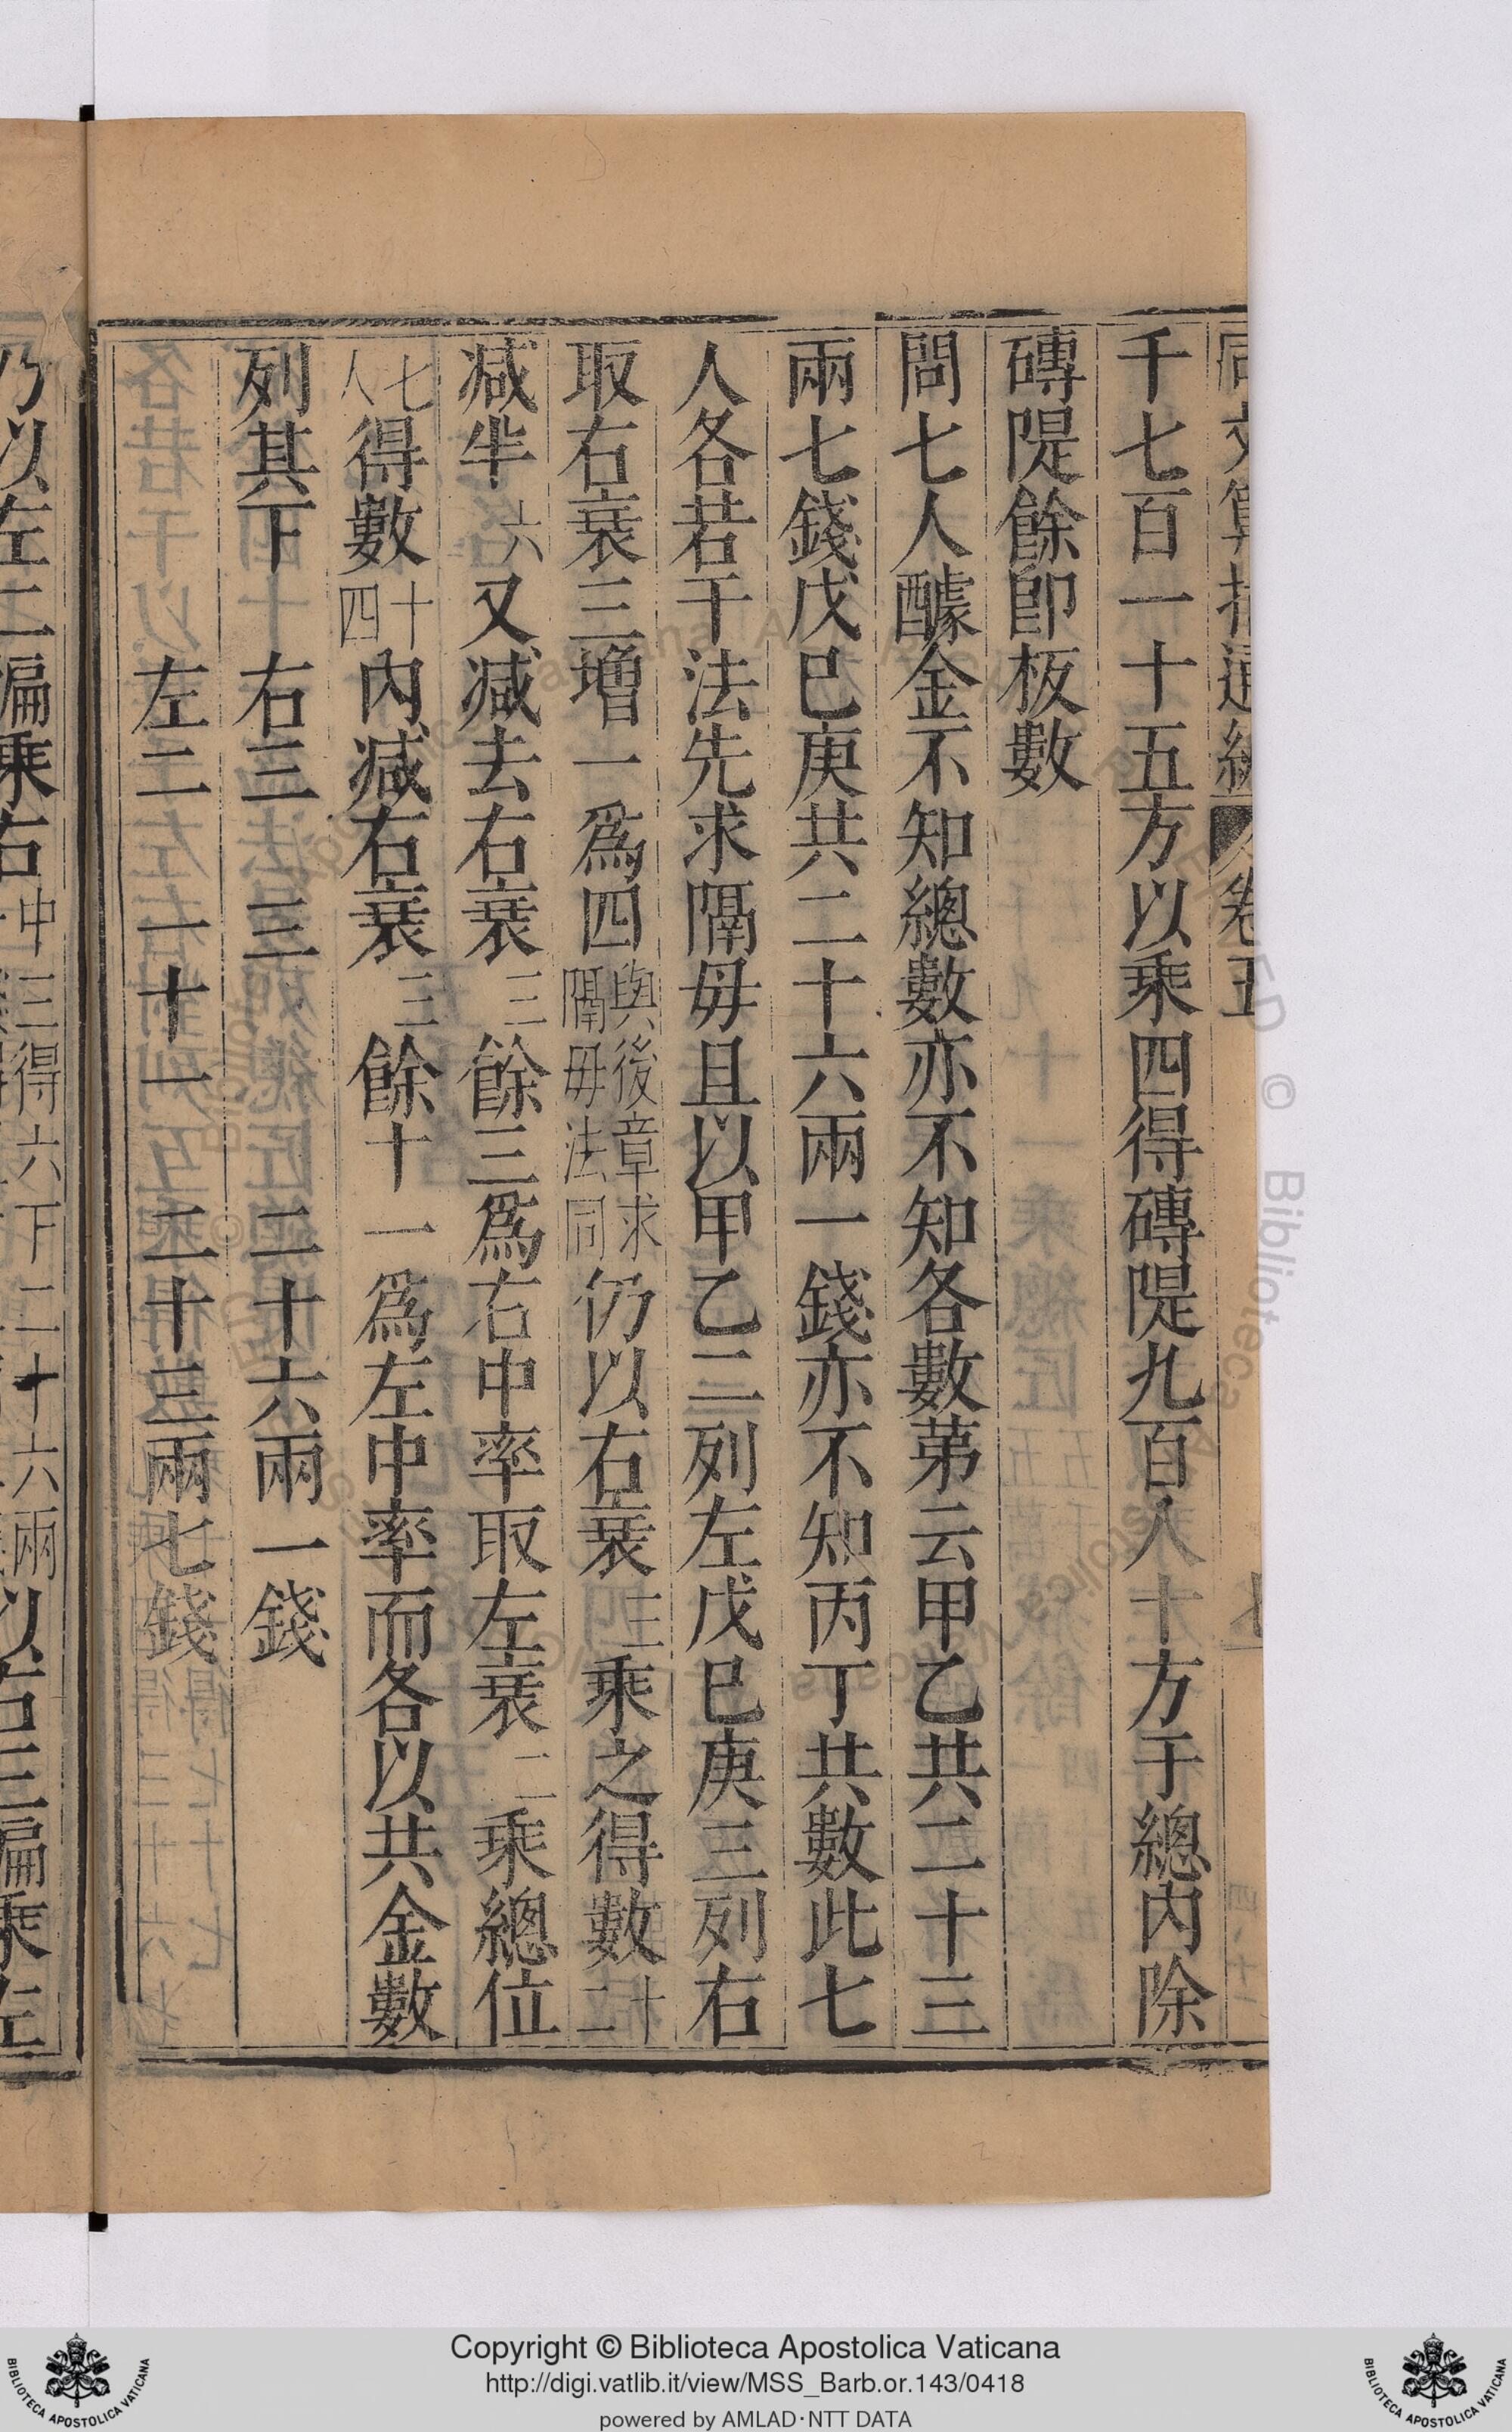 同文算指通編 卷五
千七百一十五方以乘四得磚隄九百八十方于總內除
磚隄餘卽板數
問七人醵金不知總數亦不知各數苐云甲乙共二十三
兩七錢戊巳庚共二十六兩一錢亦不知丙丁共數此七
人各若干法先求隔毋且以甲乙二列左戊巳庚三列右
取右衰三增一爲四與後章求隔毋法同仍以右衰三乘之得數十二
减半六又减去右衰三餘三爲右中率取左衰二乘總位
七人得數十四內减右衰三餘十一爲左中率而各以共金數
列其下 右三 三 二十六兩一錢
左二 一十一 二十三兩七錢
乃以左二徧乘右中三得六下二十六兩以右三徧乘左
Copyright © Biblioteca Apostolica Vaticana
http://digi.vatlib.it/view/MSS_Barb.or.143/0418
powered by AMLAD·NTT DATA
BIBLIOTECA APOSTOLICA VATICANA
BIBLIOTECA APOSTOLICA VATICANA